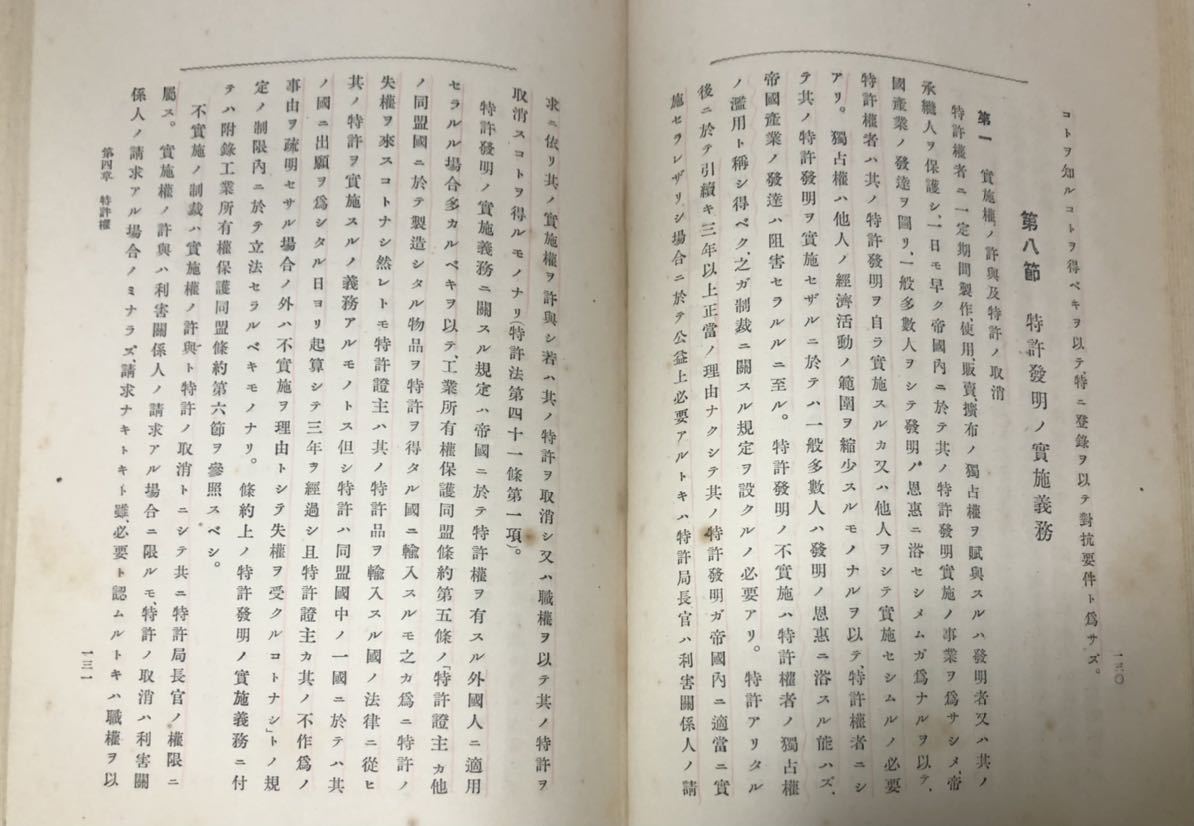 一三〇
コトヲ知ルコトヲ得ベキヲ以テ、特ニ登錄ヲ以テ對抗要件ト爲サズ。
第八節　特許發明ノ實施義務
第一　實施權ノ許與及特許ノ取消
特許權者ニ一定期間製作、使用、販賣、擴布ノ獨占權ヲ賦與スルハ發明者又ハ其ノ
承繼人ヲ保護シ、一日モ早ク帝國內ニ於テ其ノ特許發明實施ノ事業ヲ爲サシメ、帝
國產業ノ發達ヲ圖リ、一般多數人ヲシテ發明ノ恩惠ニ浴セシメムガ爲ナルヲ以テ、
特許權者ハ其ノ特許發明ヲ自ラ實施スルカ又ハ他人ヲシテ實施セシムルノ必要
アリ。獨占權ハ他人ノ經濟活動ノ範圍ヲ縮少スルモノナルヲ以テ、特許權者ニシ
テ其ノ特許發明ヲ實施セザルニ於テハ一般多數人ハ發明ノ恩惠ニ浴スル能ハズ、
帝國產業ノ發達ハ阻害セラルルニ至ル。特許發明ノ不實施ハ特許權者ノ獨占權
ノ濫用ト稱シ得ベク、之ガ制裁ニ關スル規定ヲ設クルノ必要アリ。特許アリタル
後ニ於テ引續キ三年以上正當ノ理由ナクシテ其ノ特許發明ガ帝國內ニ適當ニ實
施セラレザリシ場合ニ於テ公益上必要アルトキハ特許局長官ハ利害關係人ノ請
求ニ依リ其ノ實施權ヲ許與シ若ハ其ノ特許ヲ取消シ又ハ職權ヲ以テ其ノ特許ヲ
取消スコトヲ得ルモノナリ(特許法第四十一條第一項)。
特許發明ノ實施義務ニ關スル規定ハ帝國ニ於テ特許權ヲ有スル外國人ニ適用
セラルル場合多カルベキヲ以テ、工業所有權保護同盟條約第五條ノ「特許證主カ他
ノ同盟國ニ於テ製造シタル物品ヲ特許ヲ得タル國ニ輸入スルモ之カ爲ニ特許ノ
失權ヲ來スコトナシ然レトモ特許證主ハ其ノ特許品ヲ輸入スル國ノ法律ニ從ヒ
其ノ特許ヲ實施スルノ義務アルモノトス但シ特許ハ同盟國中ノ一國ニ於テハ其
ノ國ニ出願ヲ爲シタル日ヨリ起算シテ三年ヲ經過シ且特許證主カ其ノ不作爲ノ
事由ヲ疏明セサル場合ノ外ハ不實施ヲ理由トシテ失權ヲ受クルコトナシ」トノ規
定ノ制限內ニ於テ立法セラルベキモノナリ。條約上ノ特許發明ノ實施義務ニ付
テハ附錄工業所有權保護同盟條約第六節ヲ參照スベシ。
不實施ノ制裁ハ實施權ノ許與ト特許ノ取消トニシテ共ニ特許局長官ノ權限ニ
屬ス。實施權ノ許與ハ利害關係人ノ請求アル場合ニ限ルモ、特許ノ取消ハ利害關
係人ノ請求アル場合ノミナラズ、請求ナキトキト雖、必要ト認ムルトキハ職權ヲ以
第四章　特許權
一三一